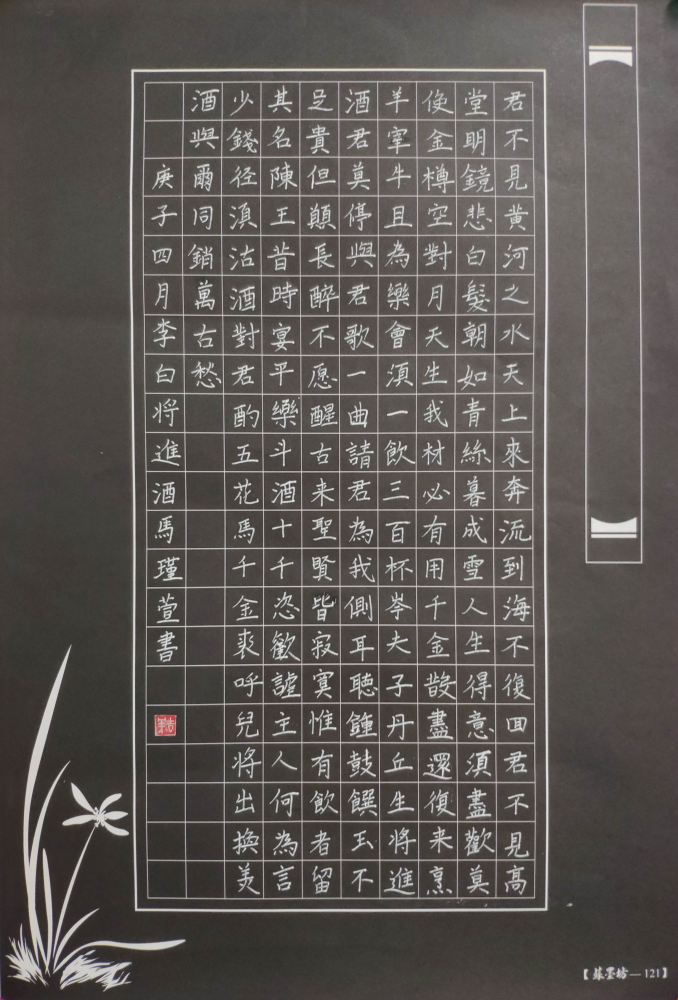 君不見黄河之水天上來奔流到海不復回君不見高
堂明鏡悲白髮朝如青絲暮成雪人生得意須盡歡莫
使金樽空對月天生我材必有用千金散盡還復来烹
羊宰牛且為樂會須一飲三百杯岑夫子丹丘生將進
酒君莫停與君歌一曲請君為我側耳聽鍾鼓饌玉不
足貴但願長醉不愿醒古来聖賢皆寂寞惟有飲者留
其名陳王昔時宴平樂斗酒十千恣歡謔主人何為言
少錢径須沽酒對君酌五花馬千金裘呼兒将出換美
酒與爾同銷萬古愁
庚子四月李白将進酒馬瑾萱書
【蘇墨坊—121】